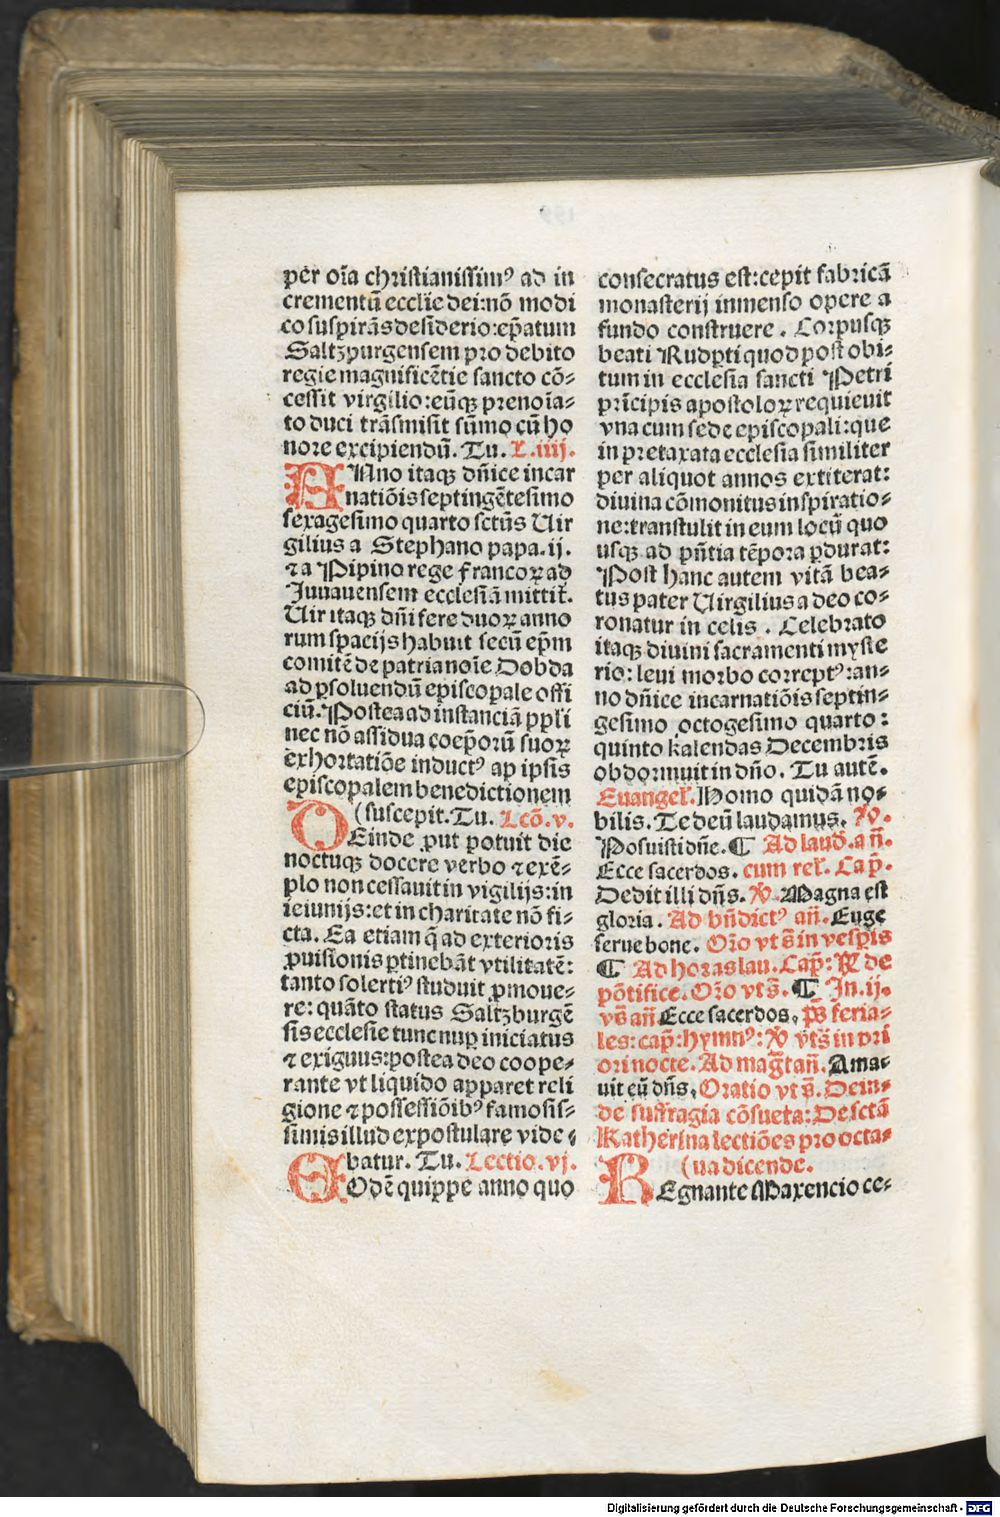 per oīa christianissimꝰ ad in
crementū ecclie dei:nō modi
co suspirās desiderio:ep̄atum
Saltzpurgensem pro debito
regie magnificētie sancto cō⸗
cessit virgilio:eūqꝫ prenoīa⸗
to duci trāsmisit sūmo cū ho
nore excipiendū. Tu. L.iiij.
ANno itaqꝫ dn̄ice incar
natiōis septingētesimo
sexagesimo quarto sctūs Uir
gilius a Stephano papa.ij.
⁊ a Pipino rege francoꝝ ad
Juuauensem ecclesiā mittit̄.
Uir itaqꝫ dn̄i fere duoꝝ anno
rum spacijs habuit secū ep̄m
comitē de patria noīe Dobda
ad ꝑsoluendū episcopale offi
ciū. Postea ad instanciā ppl̄i
nec nō assidua coep̄orū suoꝝ
exhortatiōe inductꝰ ap ipsis
episcopalem benedictionem
(suscepit. Tu. Lcō.v.
DEinde ꝓut potuit die
noctuqꝫ docere verbo ⁊ exē⸗
plo non cessauit in vigilijs:in
ieiunijs:et in charitate nō fi⸗
cta. Ea etiam q̄ ad exterioris
ꝓuisionis ꝑtinebāt vtilitatē:
tanto solertiꝰ studuit ꝓmoue⸗
re: quāto status Saltzburgē
sis ecclesie tunc nuꝑ iniciatus
⁊ exiguus:postea deo coope⸗
rante vt liquido apparet reli
gione ⁊ possessiōibꝰ famosis⸗
simis illud expostulare vide⸗
batur. Tu. Lectio.vj.
EOdē quippe anno quo
consecratus est:cepit fabricā
monasterij inmenso opere a
fundo construere. Corpusqꝫ
beati Rudꝑti quod post obi⸗
tum in ecclesia sancti Petri
pricipis apostoloꝝ requieuit
vna cum sede episcopali:que
in pretaxata ecclesia similiter
per aliquot annos extiterat:
diuina cōmonitus inspiratio⸗
ne:transtulit in eum locū quo
usqꝫ ad pn̄tia tēpora ꝑdurat:
Post hanc autem vitā bea⸗
tus pater Uirgilius a deo co⸗
ronatur in celis. Celebrato
itaqꝫ diuini sacramenti myste
rio: leui morbo correptꝰ:an⸗
no dn̄ice incarnatiōis septin⸗
gesimo octogesimo quarto:
quinto kalendas Decembris
obdormuit in dn̄o. Tu autē.
Euangel̄. Homo quidā no⸗
bilis. Te deū laudamus. ℣.
Posuisti dn̄e. ¶ Ad laud̄. an̄.
Ecce sacerdos. cum rel̄. Cap̄.
Dedit illi dn̄s. ℣. Magna est
gloria. Ad bn̄dictꝰ an̄. Euge
serue bone. Or̄o vt s̄ in vesꝑis
¶ Ad horas lau. Cap̄: ℟ de
pōtifice. Or̄o vt s̄. ¶ In.ij.
vs̄ an̄ Ecce sacerdos, ps̄ feria⸗
les: cap̄: hymnꝰ: ℣ vts̄ in pri
ori nocte. Ad maḡt an̄. Ama⸗
uit eū dn̄s, Oratio vt s̄. Dein⸗
de suffragia cōsueta: De sctā
Katherina lectiōes pro octa⸗
(ua dicende.
REgnante Maxencio ce⸗
Digitalisierung gefördert durch die Deutsche Forschungsgemeinschaft - DFG